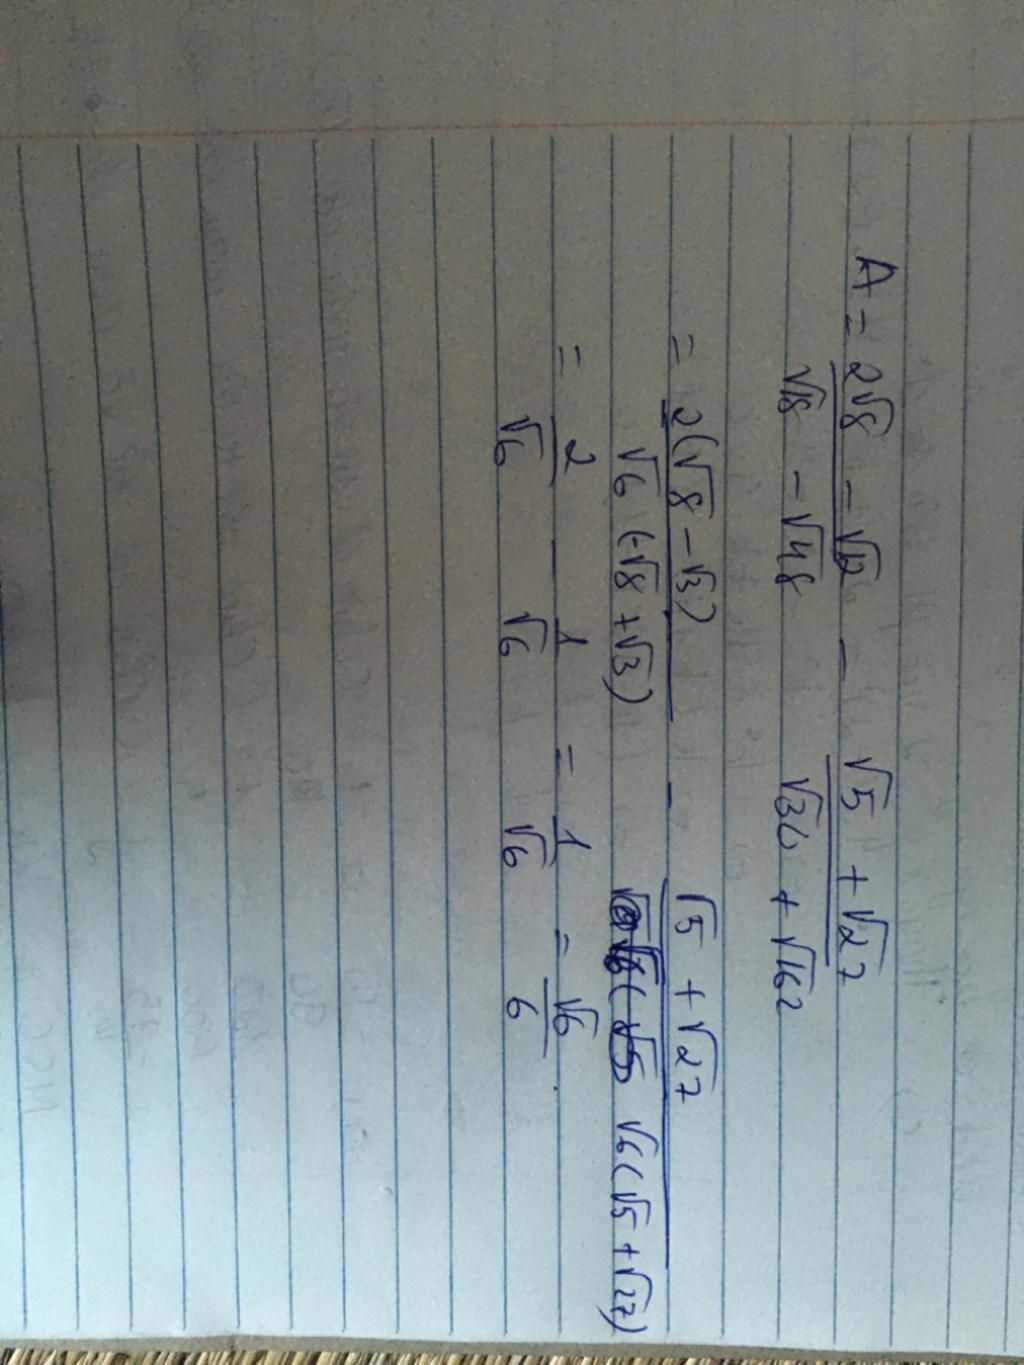 A = 2√8 - √12 / √18 - √48 - √5 + √27 / √30 + √162
= 2(√8 - √3) / √6 (-√8 + √3) - √5 + √27 / √6(√5 + √27)
= 2/√6 - 1/√6 = 1/√6 = √6/6